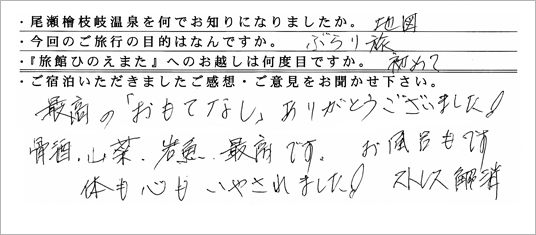 ・尾瀬檜枝岐温泉を何でお知りになりましたか。 地図
・今回のご旅行の目的はなんですか。 ぶらり旅
・『旅館ひのえまた』へのお越しは何度目ですか。 初めて
・ご宿泊いただきましたご感想・ご意見をお聞かせ下さい。
最高の「おもてなし」ありがとうございました!
骨酒、山菜、岩魚、最高です。 お風呂もです
体も心もいやされました! ストレス解消